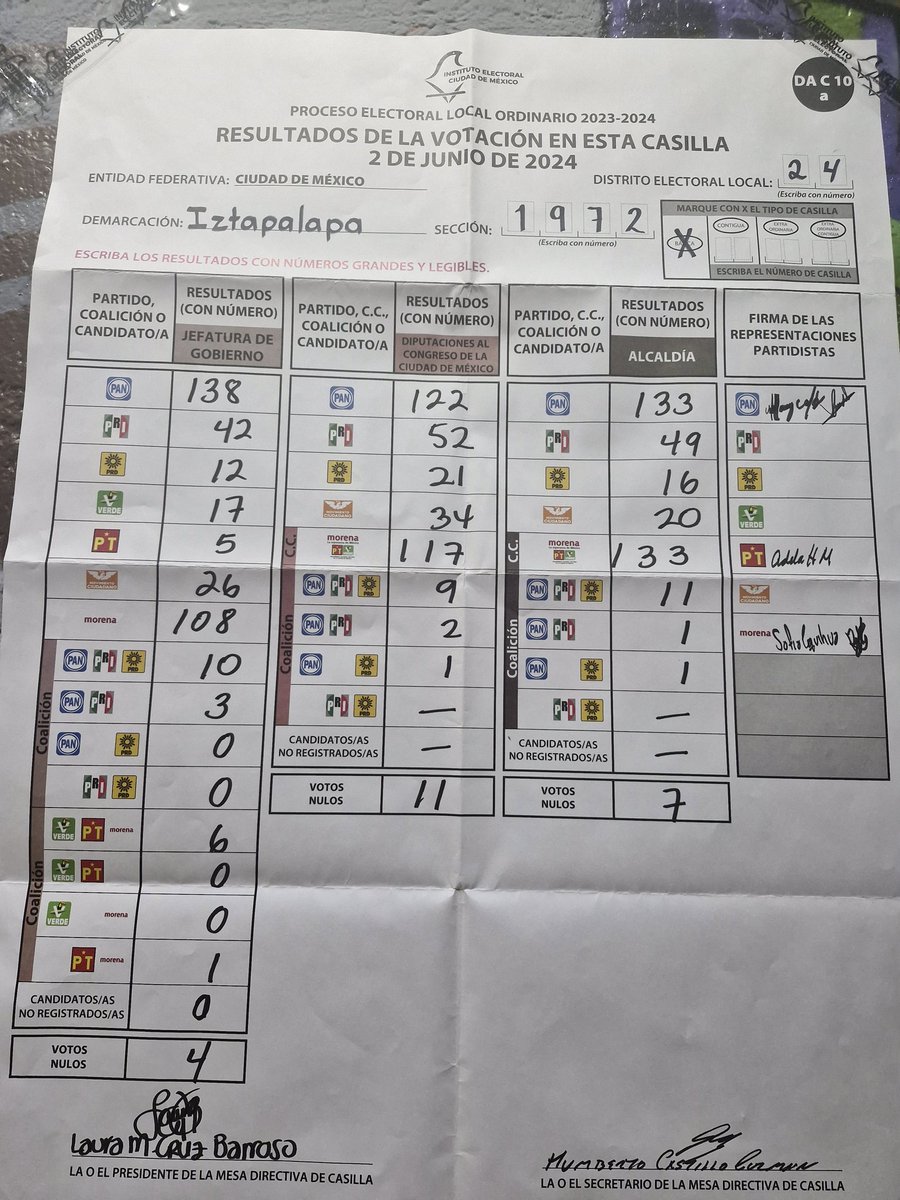 INSTITUTO ELECTORAL
CIUDAD DE MÉXICO
DA C 10
a
PROCESO ELECTORAL LOCAL ORDINARIO 2023-2024
RESULTADOS DE LA VOTACIÓN EN ESTA CASILLA
2 DE JUNIO DE 2024
ENTIDAD FEDERATIVA: CIUDAD DE MÉXICO
DISTRITO ELECTORAL LOCAL: 2 4
(Escriba con número)
DEMARCACIÓN: Iztapalapa
SECCIÓN: 1 9 7 2
(Escriba con número)
MARQUE CON X EL TIPO DE CASILLA
X CONTIGUA EXTRA ORDINARIA EXTRA ORDINARIA CONTIGUA
ESCRIBA EL NÚMERO DE CASILLA
ESCRIBA LOS RESULTADOS CON NÚMEROS GRANDES Y LEGIBLES.
PARTIDO, COALICIÓN O CANDIDATO/A
RESULTADOS (CON NÚMERO)
JEFATURA DE GOBIERNO
PAN 138
PRI 42
PRD 12
VERDE 17
PT 5
MOVIMIENTO CIUDADANO 26
morena 108
Coalición
PAN PRI PRD 10
PAN PRI 3
PAN PRD 0
PRI PRD 0
Coalición
VERDE PT morena 6
VERDE PT 0
VERDE morena 0
PT morena 1
CANDIDATOS/AS NO REGISTRADOS/AS 0
VOTOS NULOS 4
PARTIDO, C.C., COALICIÓN O CANDIDATO/A
RESULTADOS (CON NÚMERO)
DIPUTACIONES AL CONGRESO DE LA CIUDAD DE MÉXICO
PAN 122
PRI 52
PRD 21
MOVIMIENTO CIUDADANO 34
C.C.
morena PT 117
Coalición
PAN PRI PRD 9
PAN PRI 2
PAN PRD 1
PRI PRD —
CANDIDATOS/AS NO REGISTRADOS/AS —
VOTOS NULOS 11
PARTIDO, C.C., COALICIÓN O CANDIDATO/A
RESULTADOS (CON NÚMERO)
ALCALDÍA
PAN 133
PRI 49
PRD 16
MOVIMIENTO CIUDADANO 20
C.C.
morena PT 133
Coalición
PAN PRI PRD 11
PAN PRI 1
PAN PRD 1
PRI PRD —
CANDIDATOS/AS NO REGISTRADOS/AS —
VOTOS NULOS 7
FIRMA DE LAS REPRESENTACIONES PARTIDISTAS
PAN
PRI
PRD
VERDE
PT Adela H M
MOVIMIENTO CIUDADANO
morena
Laura M CRUZ Barroso
LA O EL PRESIDENTE DE LA MESA DIRECTIVA DE CASILLA
HUMBERTO CASTILLO GUZMAN
LA O EL SECRETARIO DE LA MESA DIRECTIVA DE CASILLA